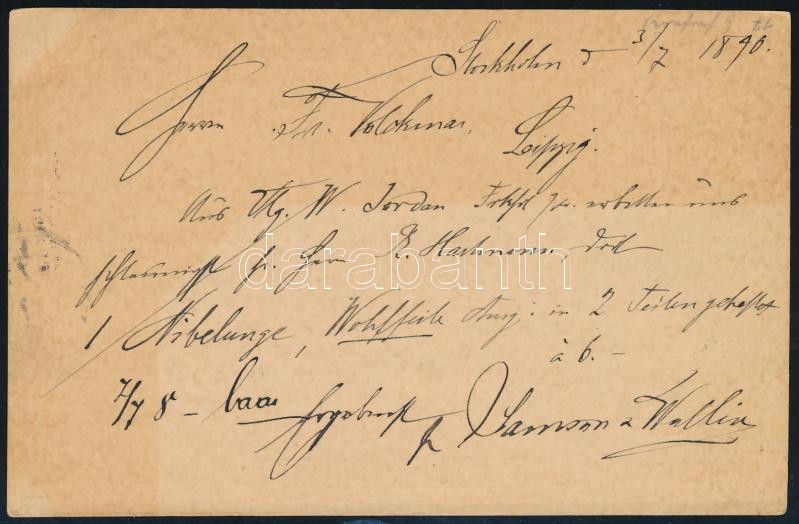 Stockholm d 3/7 1890.
Herrn Fr. Volckmar,
Leipzig.
Aus Vlg. W. Jordan Frkft a/M. erbitten uns
schleunigst fr. Herrn R. Hartmann, dort
1 Nibelunge, Wohlfeile Ausg. in 2 Teilen geheftet
à 6.-
7/7 8 - baar Ergebenst
p Samson & Wallin
darabanth